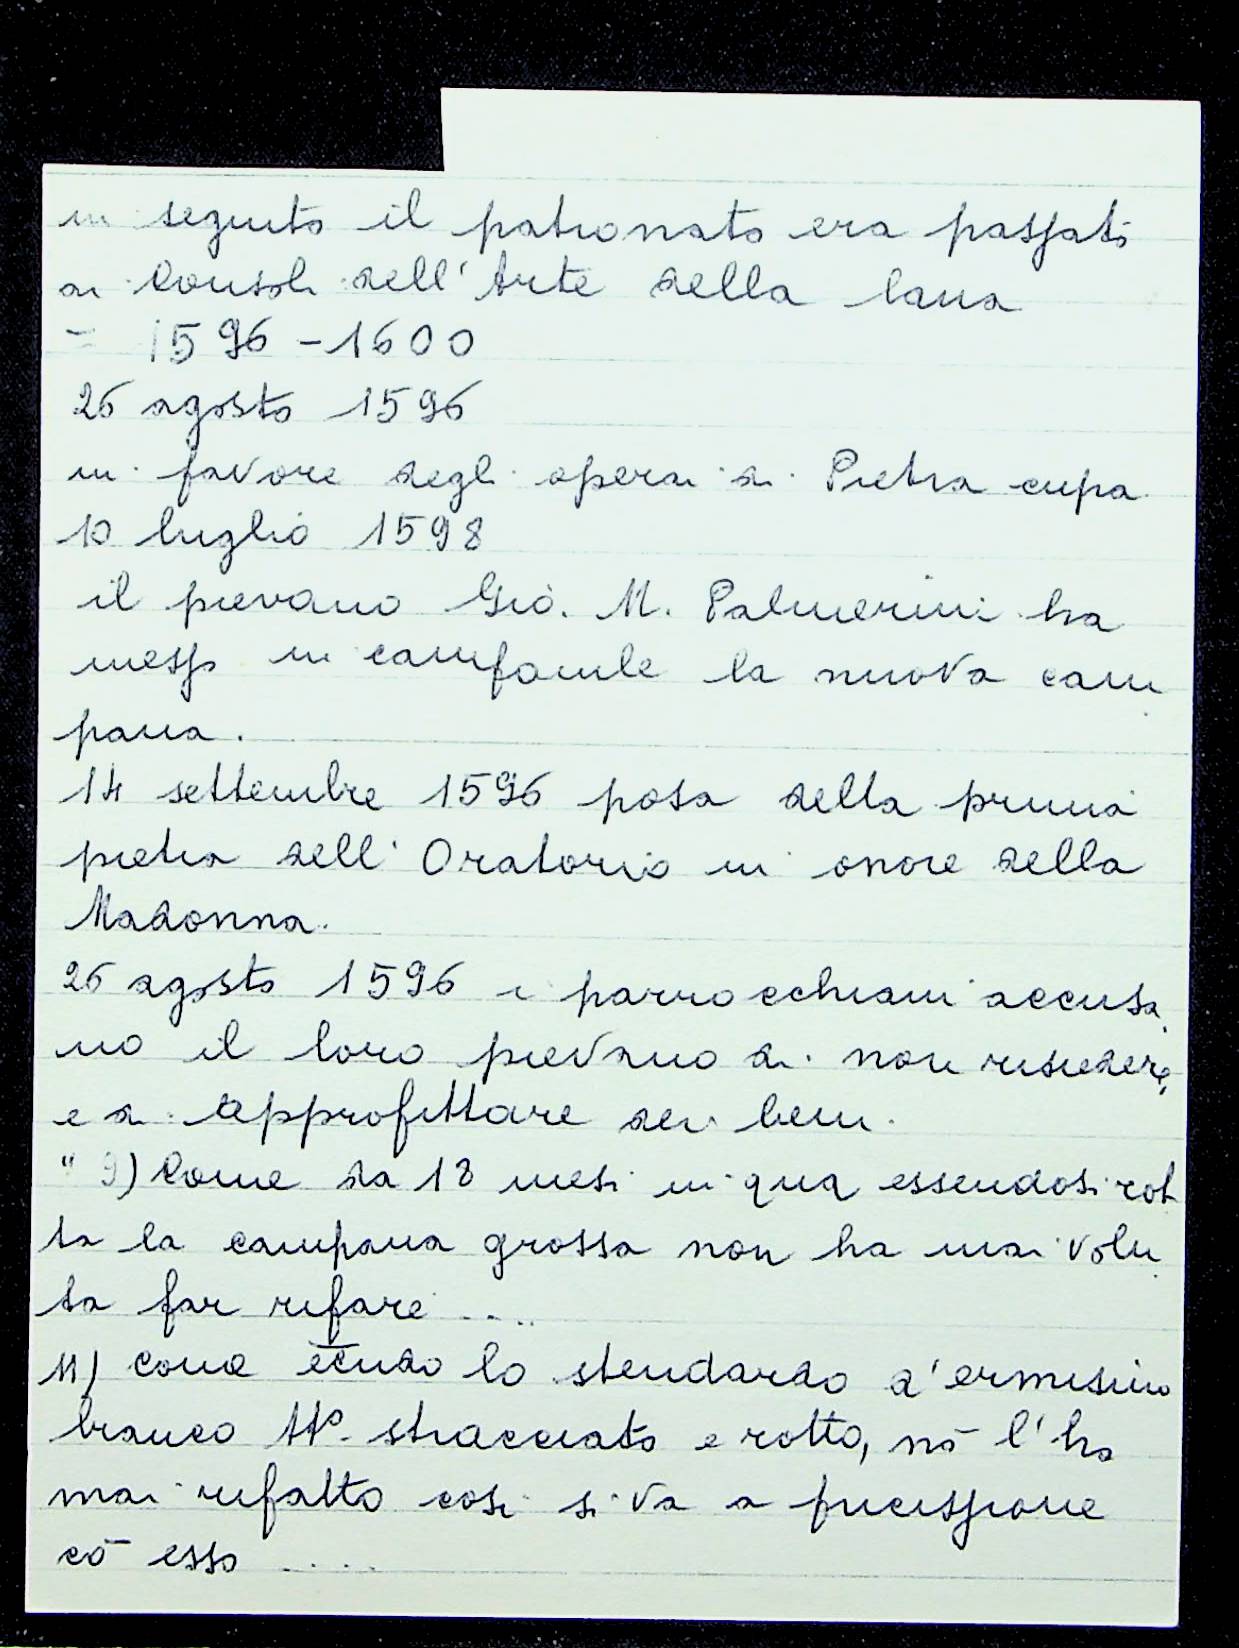 in seguito il patronato era passato
ai Consoli dell'Arte della lana
= 1596 - 1600
26 agosto 1596
in favore degli operai di Pietra cupa
10 luglio 1598
il pievano Giò. M. Palmerini ha
messo in campanile la nuova cam
pana.
14 settembre 1596 posa della prima
pietra dell'Oratorio in onore della
Madonna.
26 agosto 1596 i parrocchiani accusa
no il loro pievano di non risiedere,
e di approfittare dei beni.
" 9) Come da 18 mesi in qua essendosi rot
ta la campana grossa non ha mai volu
ta far rifare ....
11) come ecudo lo stendardo d'ermisino
bianco tt.º stracciato e rotto, nō l'ha
mai rifatto così si va a pricissione
cō esso ....